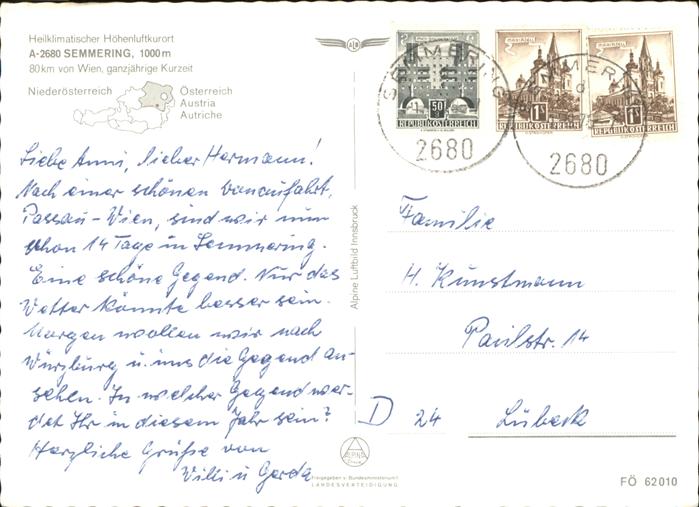 Heilklimatischer Höhenluftkurort
A-2680 SEMMERING, 1000 m
80 km von Wien, ganzjährige Kurzeit
Niederösterreich
Österreich
Austria
Autriche
Liebe Anni, lieber Hermann!
Nach einer schönen Donaufahrt,
Passau - Wien, sind wir nun
schon 14 Tage in Semmering.
Eine schöne Gegend. Nur das
Wetter könnte besser sein.
Morgen wollen wir nach
Würzburg u. uns die Gegend an-
sehen. In welcher Gegend wer-
det Ihr in diesem Jahr sein?
Herzliche Grüße von
Willi u Gerda
Alpine Luftbild Innsbruck
50 g
REPUBLIK ÖSTERREICH
MARIAZELL
1S
REPUBLIK ÖSTERREICH
MARIAZELL
1S
REPUBLIK ÖSTERREICH
SEMMERING
2680
SEMMERING
2680
Familie
H. Kunstmann
Paulstr. 14
D 24 Lübeck
ALPINE
Freigegeben v. Bundesministerium f.
LANDESVERTEIDIGUNG
FÖ 62010